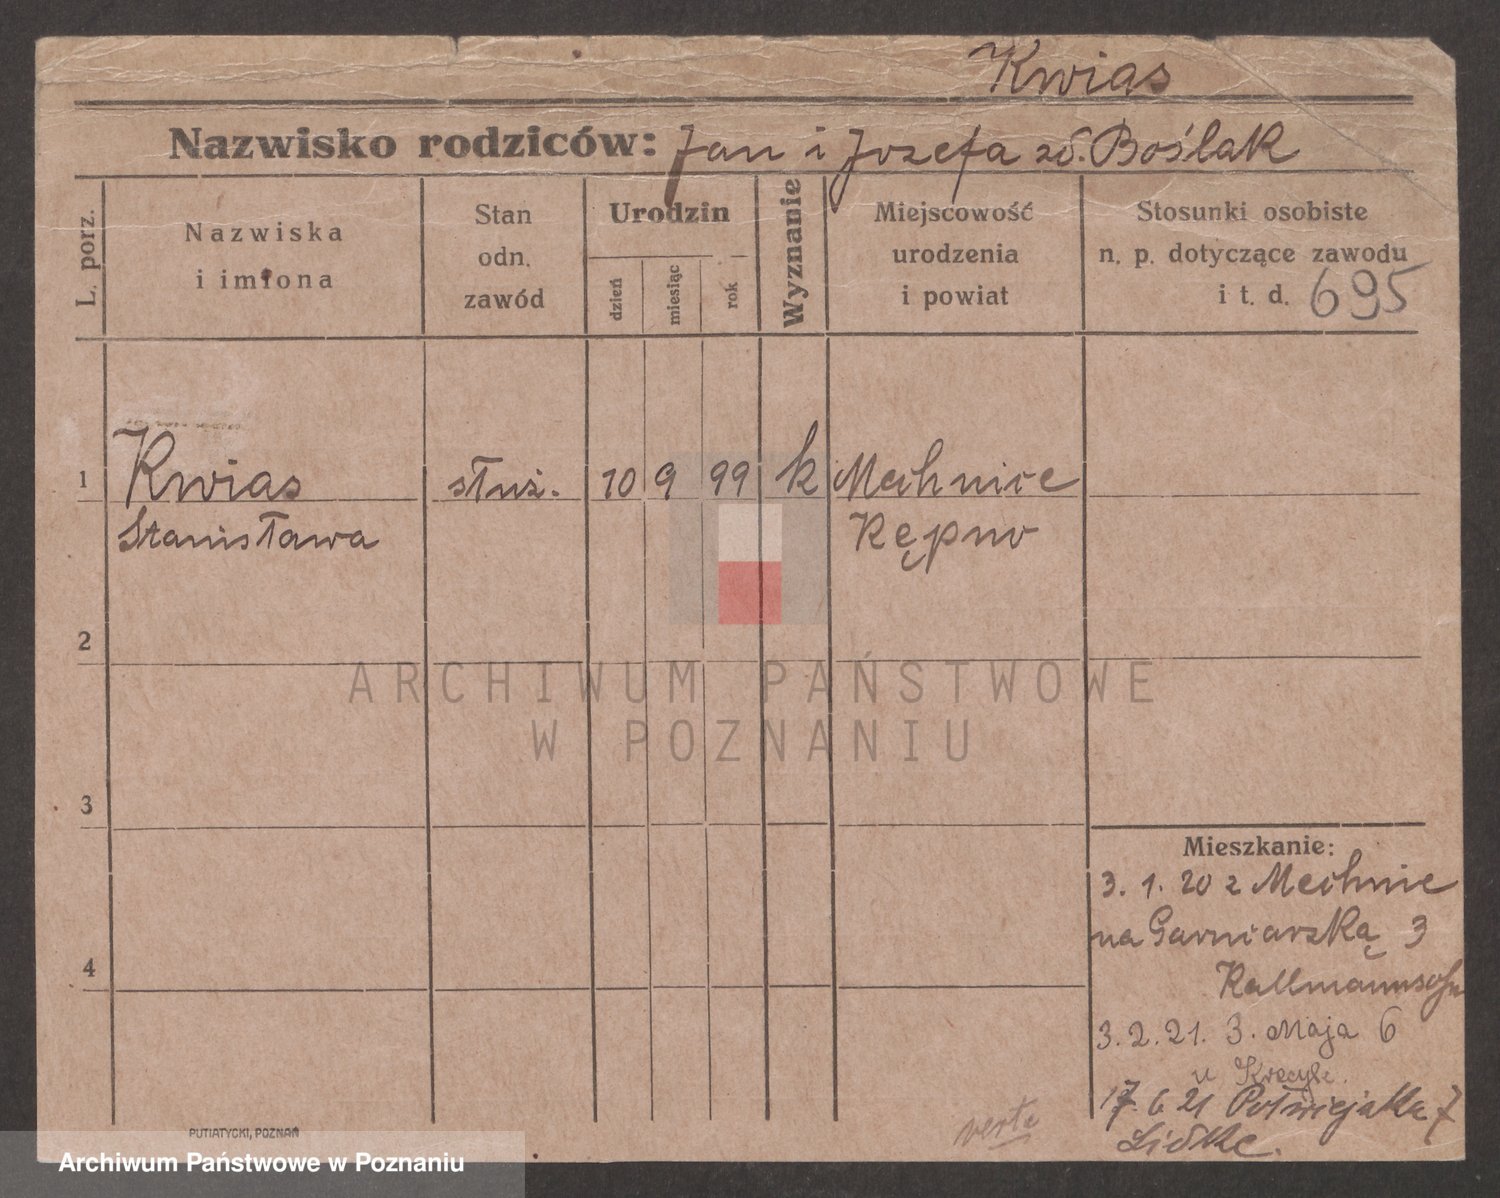 Kwias
Nazwisko rodziców: Jan i Jozefa zd. Boślak
L. porz.
Nazwiska
i imiona
Stan
odn.
zawód
Urodzin
dzień
miesiąc
rok
Wyznanie
Miejscowość
urodzenia
i powiat
Stosunki osobiste
n. p. dotyczące zawodu
i t. d. 695
1 Kwias służ. 10 9 99 k Mechnice
Stanisława Kępno
2
ARCHIWUM PAŃSTWOWE
W POZNANIU
3
Mieszkanie:
3. 1. 20 z Mechnic
na Garniarską 3
4
Kallmannsohn
3.2.21. 3. Maja 6
u
17. 6 21 Półwiejska 7
verte
PUTIATYCKI, POZNAŃ
Archiwum Państwowe w Poznaniu